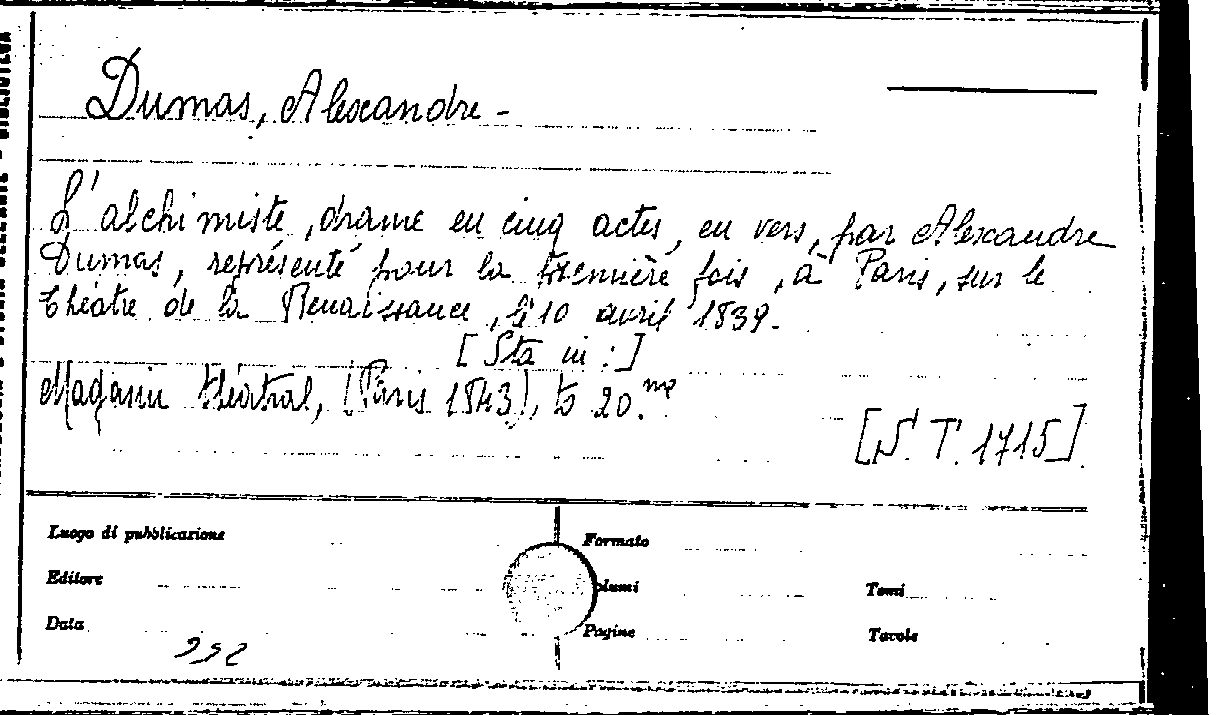 Dumas, Alexandre -
L'alchimiste, drame en cinq actes, en vers, par Alexandre
Dumas, représenté pour la première fois, à Paris, sur le
théâtre de la Renaissance, le 10 avril 1839.
[Sta in:]
Magasin théatral, (Paris 1843), to 20.me
[S. T. 1715].
Luogo di pubblicazione
Formato
Editore
Volumi
Tomi
Data
Pagine
Tavole